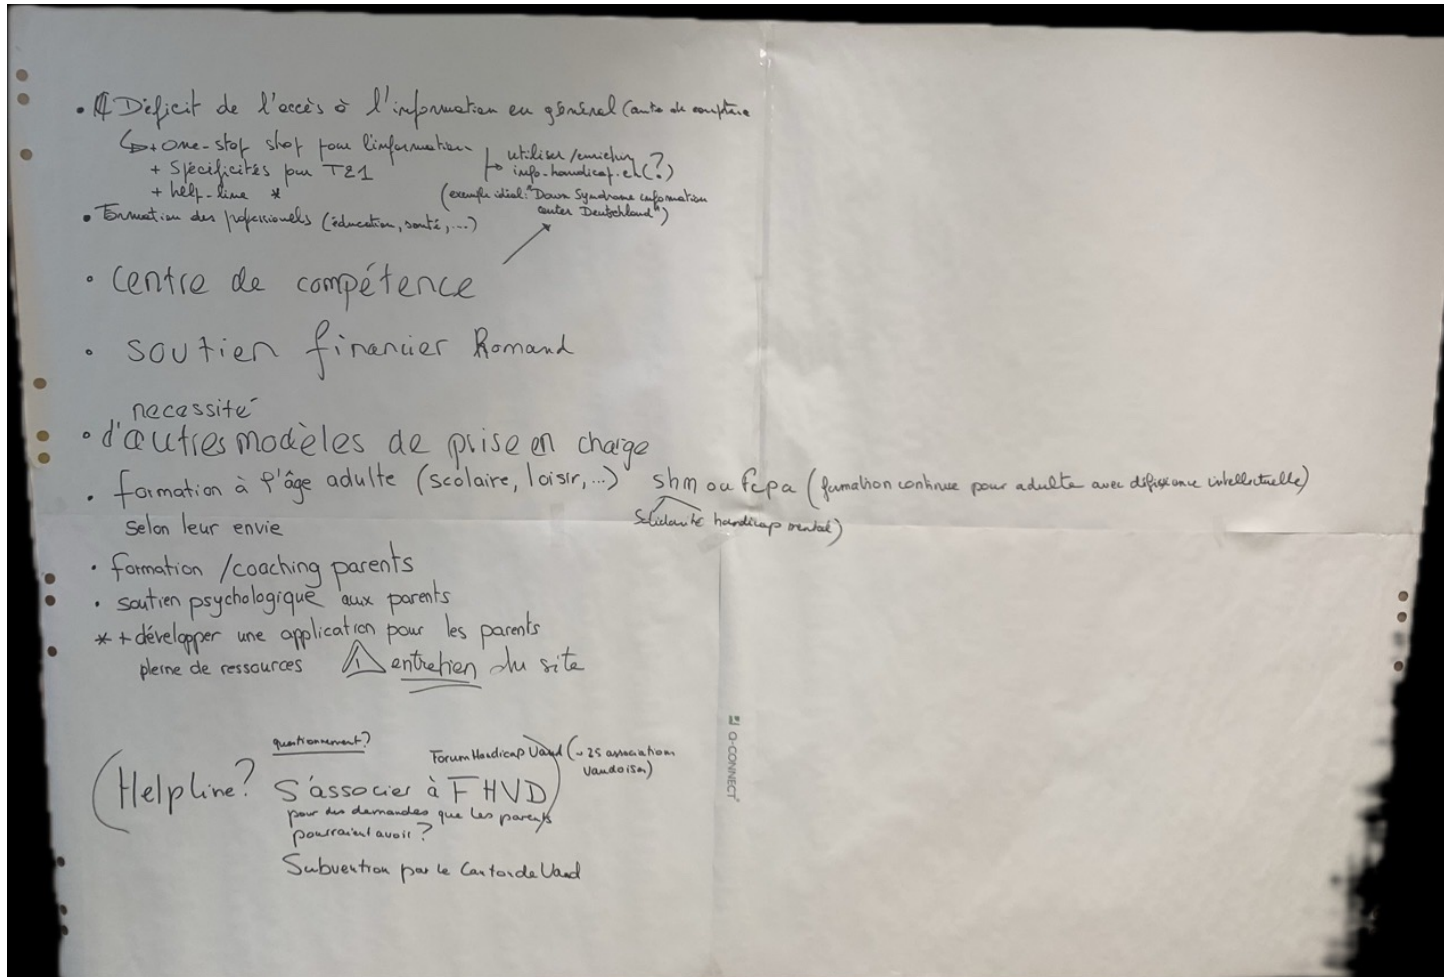 • Déficit de l'accès à l'information en général (
↳ + one-stop shop pour l'information
+ Spécificités pour T21
+ help-line *
↳ utiliser/enrichir
info-handicap.ch (?)
(exemple idéal: "Down Syndrome information
center Deutschland")
• Formation des professionels (éducation, santé, ...)
• Centre de compétence
• soutien financier Romand
necessité
• d'autres modèles de prise en charge
• formation à l'âge adulte (scolaire, loisir, ...) shm ou fcpa (formation continue pour adulte avec déficience intellectuelle)
selon leur envie
Solidarité handicap mental)
• formation /coaching parents
• soutien psychologique aux parents
* + développer une application pour les parents
pleine de ressources ⚠ entretien du site
questionnement?
Forum Handicap Vaud (~25 associations
vaudoises)
(Helpline? S'associer à FHVD)
pour des demandes que les parents
pourraient avoir?
Subvention par le Canton de Vaud
Q-CONNECT